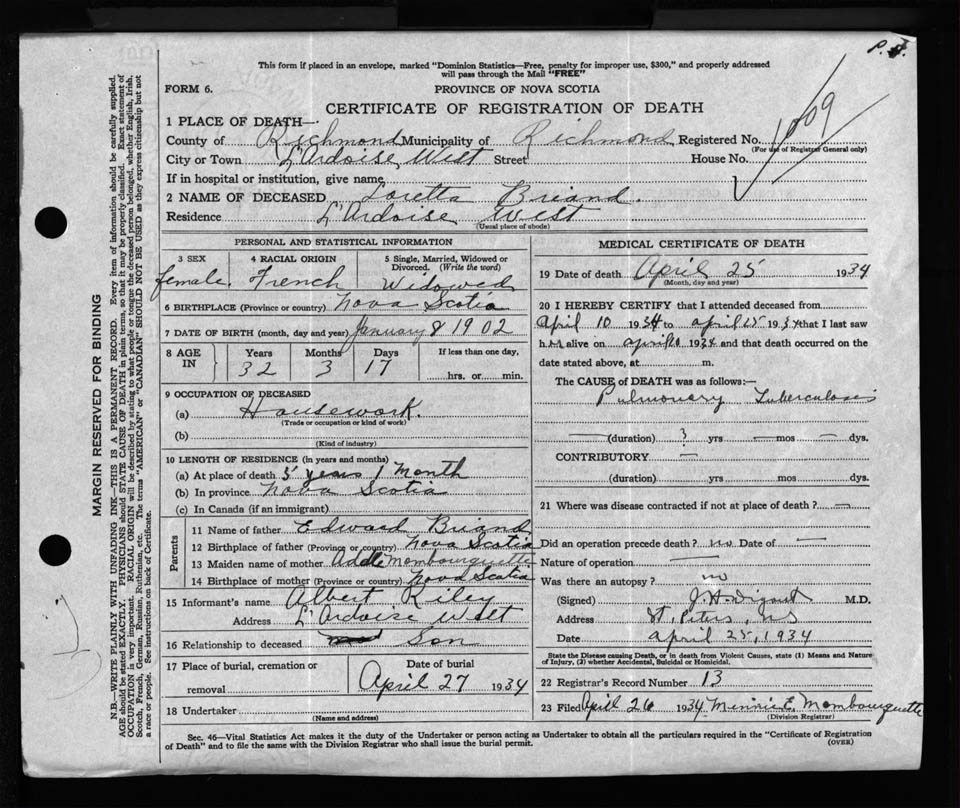 P. F.
This form if placed in an envelope, marked "Dominion Statistics—Free, penalty for improper use, $300," and properly addressed
will pass through the Mail "FREE"
FORM 6. PROVINCE OF NOVA SCOTIA
CERTIFICATE OF REGISTRATION OF DEATH
1 PLACE OF DEATH—
County of Richmond Municipality of Richmond Registered No.
(For use of Registrar General only)
City or Town L'Ardoise West Street House No.
If in hospital or institution, give name
2 NAME OF DECEASED Loretta Briand.
Residence L'Ardoise West
(Usual place of abode)
PERSONAL AND STATISTICAL INFORMATION
3 SEX 4 RACIAL ORIGIN 5 Single, Married, Widowed or Divorced. (Write the word)
female. French Widowed
6 BIRTHPLACE (Province or country) Nova Scotia
7 DATE OF BIRTH (month, day and year) January 8 1902
8 AGE IN Years Months Days If less than one day,
32 3 17 hrs. or min.
9 OCCUPATION OF DECEASED
(a) Housework.
(Trade or occupation or kind of work)
(b)
(Kind of industry)
10 LENGTH OF RESIDENCE (in years and months)
(a) At place of death 5 years 1 Month
(b) In province Nova Scotia
(c) In Canada (if an immigrant)
Parents
11 Name of father Edward Briand
12 Birthplace of father (Province or country) Nova Scotia
13 Maiden name of mother Adele Mombourquette
14 Birthplace of mother (Province or country) Nova Scotia
15 Informant's name Albert Riley
Address L'Ardoise West
16 Relationship to deceased Son
17 Place of burial, cremation or removal Date of burial
April 27 1934
18 Undertaker
(Name and address)
MEDICAL CERTIFICATE OF DEATH
19 Date of death April 25 1934
(Month, day and year)
20 I HEREBY CERTIFY that I attended deceased from
April 10 1934 to April 25 1934 that I last saw
h alive on April 1934 and that death occurred on the
date stated above, at m.
The CAUSE of DEATH was as follows:—
Pulmonary Tuberculosis
— (duration) 3 yrs — mos — dys.
CONTRIBUTORY —
(duration) yrs. mos. dys.
21 Where was disease contracted if not at place of death? —
Did an operation precede death? no Date of —
Nature of operation —
Was there an autopsy? no
(Signed) M.D.
Address St. Peters, NS
Date April 25, 1934
State the Disease causing Death, or in death from Violent Causes, state (1) Means and Nature
of Injury, (2) whether Accidental, Suicidal or Homicidal.
22 Registrar's Record Number 13
23 Filed April 26 1934 Minnie E. Mombourquette
(Division Registrar)
Sec. 46—Vital Statistics Act makes it the duty of the Undertaker or person acting as Undertaker to obtain all the particulars required in the "Certificate of Registration
of Death" and to file the same with the Division Registrar who shall issue the burial permit.
(OVER)
MARGIN RESERVED FOR BINDING
N.B.—WRITE PLAINLY WITH UNFADING INK—THIS IS A PERMANENT RECORD. Every item of information should be carefully supplied.
AGE should be stated EXACTLY. PHYSICIANS should STATE CAUSE OF DEATH in plain terms, so that it may be properly classified. Exact statement of
OCCUPATION is very important. RACIAL ORIGIN will be described by stating to what people or tongue the deceased person belonged, whether English, Irish,
Scotch, French, German, Russian, Ruthenian, etc. The terms "AMERICAN" or "CANADIAN" SHOULD NOT BE USED as they express citizenship but not
a race or people. See instructions on back of Certificate.